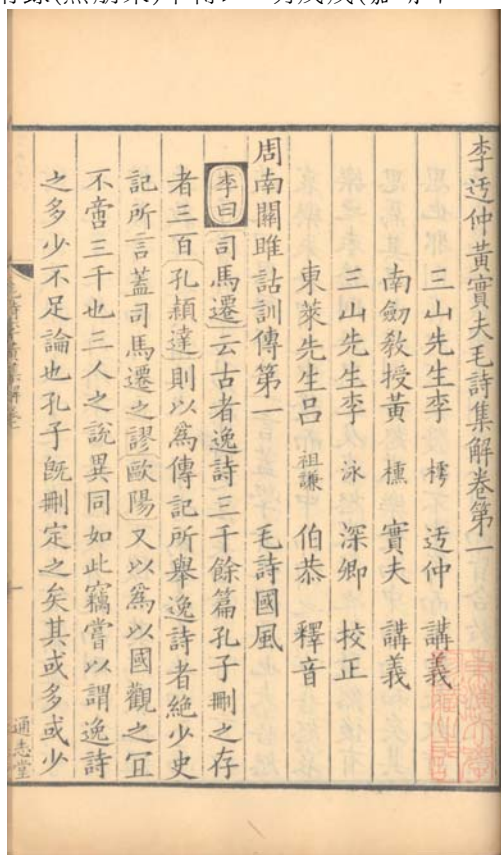 李迃仲黃實夫毛詩集解卷第一
三山先生李 樗 迃仲 講義
南劔敎授黃 櫄 實夫 講義
三山先生李 泳 深卿 校正
東萊先生呂 祖謙 伯恭 釋音
周南關雎詁訓傳第一 毛詩國風
李曰司馬遷云古者逸詩三千餘篇孔子刪之存
者三百孔穎達則以爲傳記所舉逸詩者絶少史
記所言蓋司馬遷之謬歐陽又以爲以國觀之冝
不啻三千也三人之說異同如此竊嘗以謂逸詩
之多少不足論也孔子旣刪定之矣其或多或少
通志堂